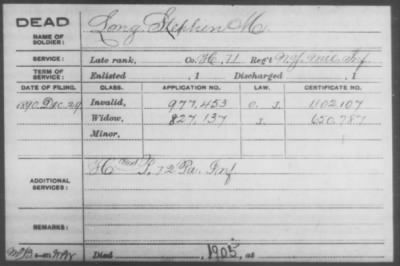 DEAD
NAME OF SOLDIER:
Long, Stephen M.
SERVICE:
Late rank, Co. H, 71 Reg't
Inf.
TERM OF SERVICE:
Enlisted , 1 Discharged , 1
DATE OF FILING. CLASS. APPLICATION NO. LAW. CERTIFICATE NO.
1890, Dec. 29. Invalid, 977,453 1102107
Widow, 827,137 650,787
Minor,
ADDITIONAL SERVICES:
H P, 72 Pa. Inf
REMARKS:
Died , 1905, at